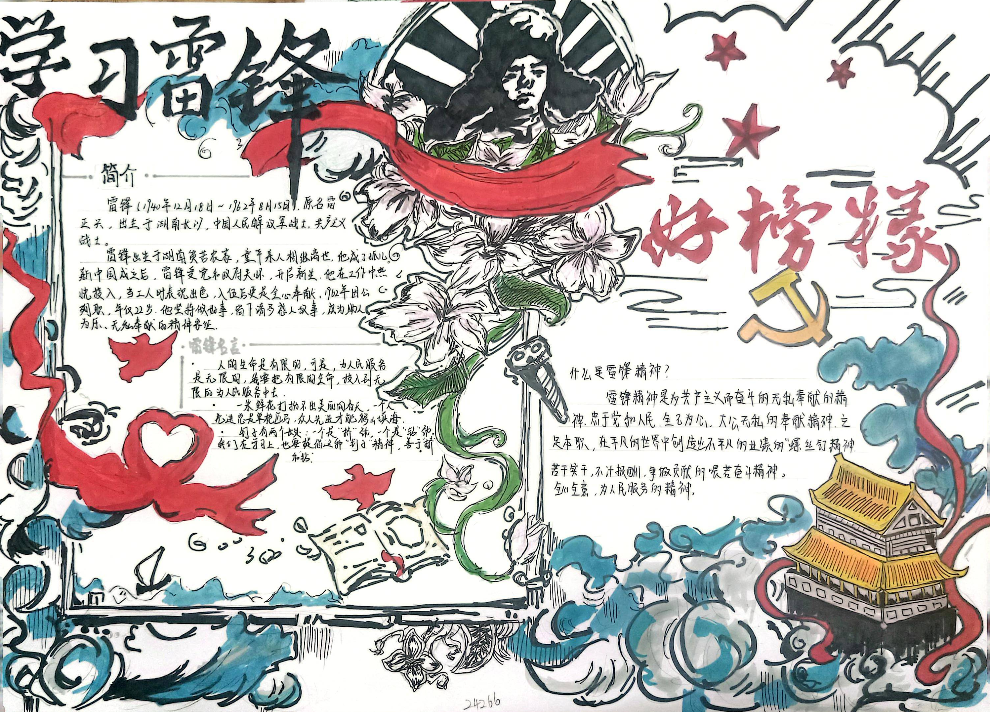 学习雷锋
好榜样
简介
雷锋(1940年12月18日-1962年8月15日)原名雷
正兴,出生于湖南长沙,中国人民解放军战士,共产主义
战士。
雷锋出生于湖南贫苦农家,童年亲人相继离世,他成了孤儿。
新中国成立后,雷锋受党和政府关怀,开启新生,他在工作中
投入,当工人时表现出色,入伍后更是全心奉献,1962年因公
殉职,年仅22岁,他坚持做好事,留下诸多感人故事,成为助人
为乐、无私奉献的精神
雷锋名言
人的生命是有限的,可是,为人民服务
是无限的,我要把有限的生命,投入到无
限的为人民服务中去。
一朵鲜花打扮不出美丽的春天,一个人
先进总是单枪匹马,众人先进才能移山填海。
钉子有两个长处:一个是"挤"劲,一个是"钻"劲,
我们在学习上,也要提倡这种"钉子"精神,善于挤
和钻。
什么是雷锋精神?
雷锋精神是为共产主义而奋斗的无私奉献的精
神,忠于党和人民,舍己为公,大公无私的奉献精神,立
足本职,在平凡的世界中创造出不平凡的业绩的"螺丝钉精神
苦干实干,不计报酬,争做贡献的艰苦奋斗精神。
全心全意,为人民服务的精神。
24266